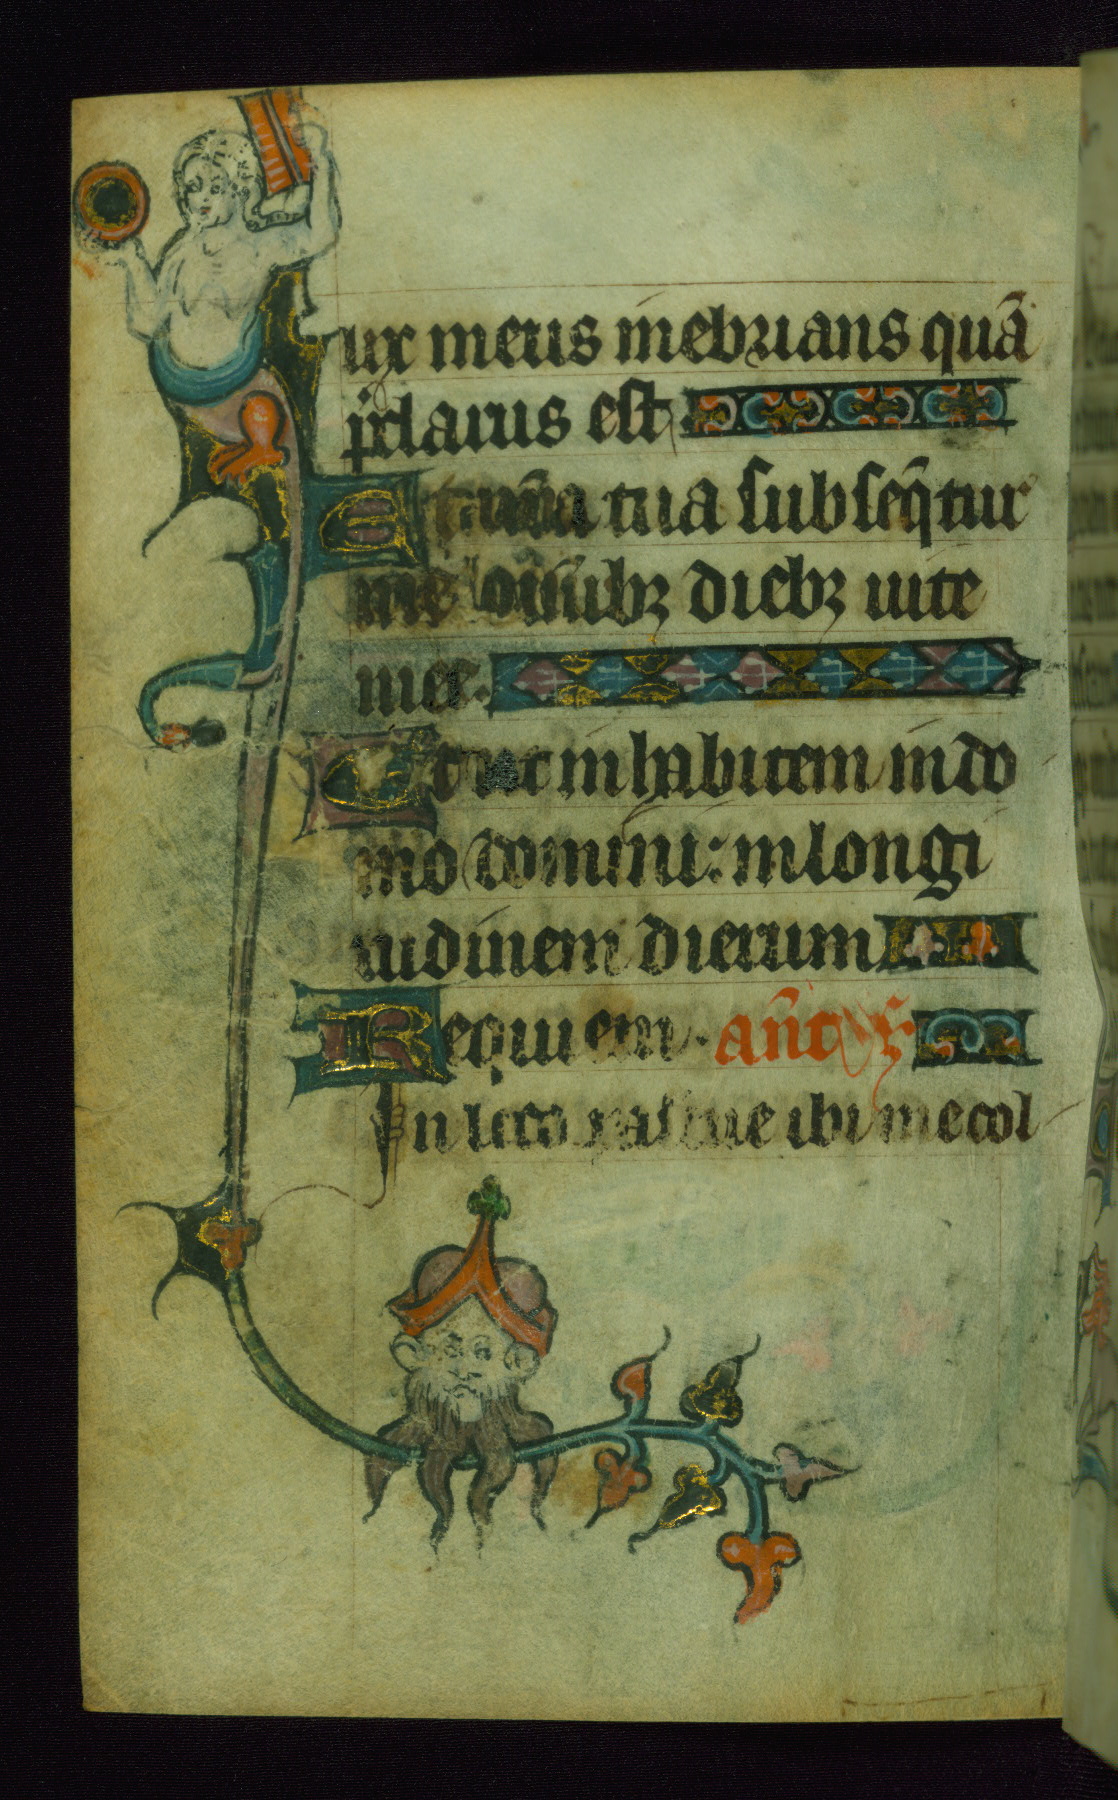 ux meus inebrians quā
p̄clarus est
Et mīa tua subseq̄tur
me om̄ibꝫ diebꝫ uite
mee.
Et ut inhabitem in do
mo domini: in longi
tudinem dierum
Requiem. an̄
In loco pascue ibi me col